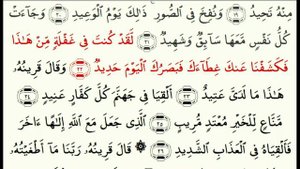 مِنْهُ تَحِيدُ ١٩ وَنُفِخَ فِي ٱلصُّورِ ذَٰلِكَ يَوْمُ ٱلْوَعِيدِ ٢٠ وَجَآءَتْ
كُلُّ نَفْسٍ مَّعَهَا سَآئِقٌ وَشَهِيدٌ ٢١ لَّقَدْ كُنتَ فِي غَفْلَةٍ مِّنْ هَٰذَا
فَكَشَفْنَا عَنكَ غِطَآءَكَ فَبَصَرُكَ ٱلْيَوْمَ حَدِيدٌ ٢٢ وَقَالَ قَرِينُهُۥ
هَٰذَا مَا لَدَيَّ عَتِيدٌ ٢٣ أَلْقِيَا فِي جَهَنَّمَ كُلَّ كَفَّارٍ عَنِيدٍ ٢٤
مَّنَّاعٍ لِّلْخَيْرِ مُعْتَدٍ مُّرِيبٍ ٢٥ ٱلَّذِي جَعَلَ مَعَ ٱللَّهِ إِلَٰهًا ءَاخَرَ
فَأَلْقِيَاهُ فِي ٱلْعَذَابِ ٱلشَّدِيدِ ٢٦ قَالَ قَرِينُهُۥ رَبَّنَا مَآ أَطْغَيْتُهُۥ